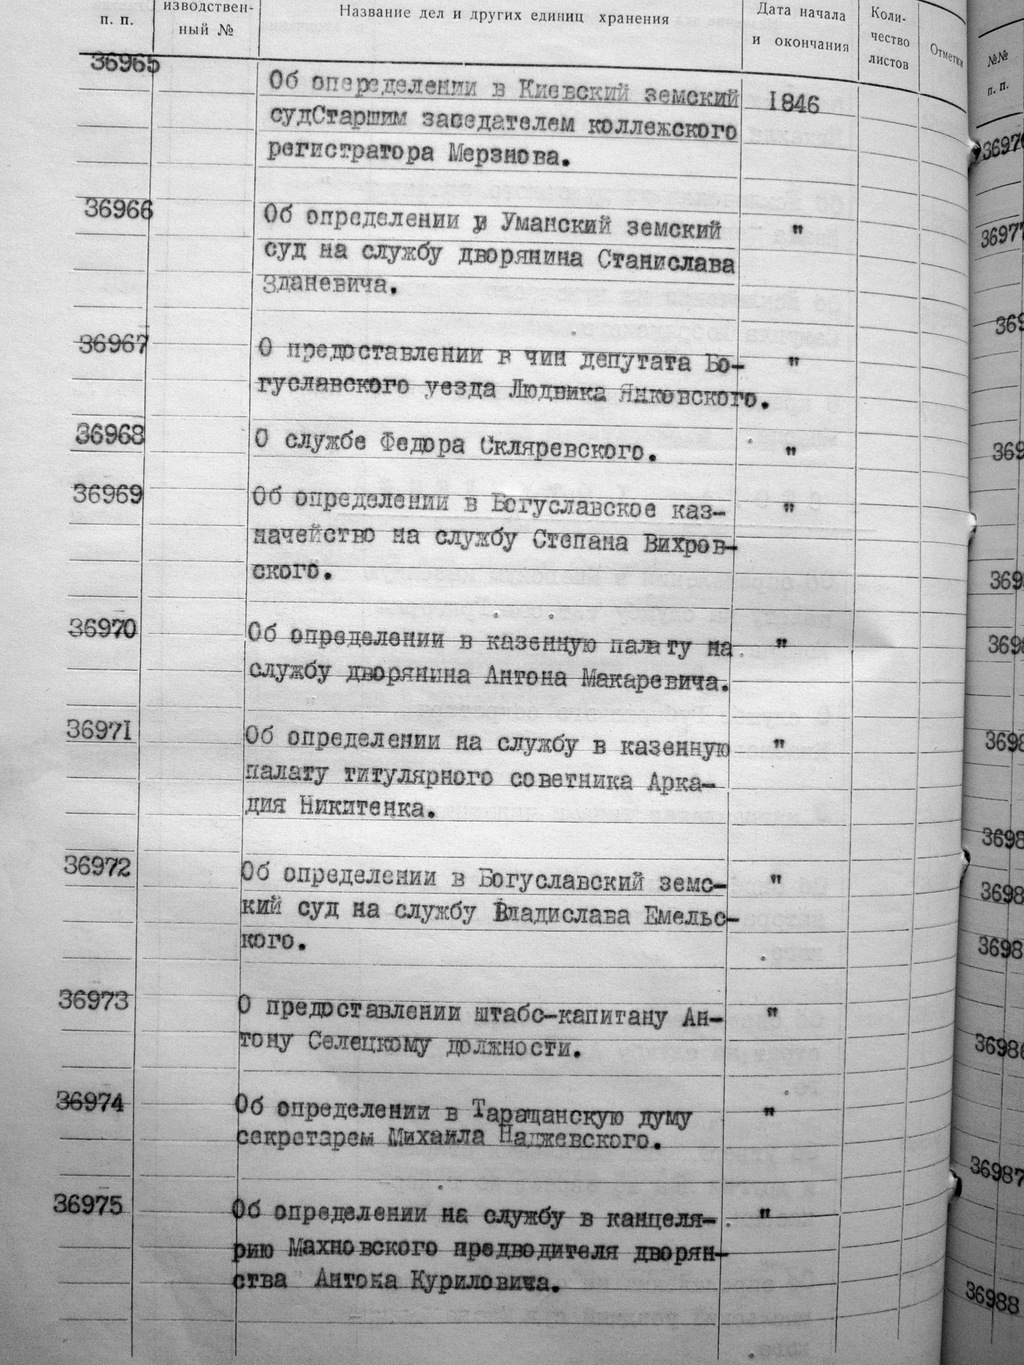 п. п.
изводствен-
ный №
Название дел и других единиц хранения
Дата начала
и окончания
Коли-
чество
листов
Отметки
36965
Об опеределении в Киевский земский
судСтаршим заседателем коллежского
регистратора Мерзнова.
1846
36966
Об определении в Уманский земский
суд на службу дворянина Станислава
Зданевича.
"
36967
О предоставлении в чин депутата Бо-
гуславского уезда Людвика Янковского.
"
36968
О службе Федора Скляревского.
"
36969
Об определении в Богуславское каз-
начейство на службу Степана Вихров-
ского.
"
36970
Об определении в казенную палату на
службу дворянина Антона Макаревича.
"
36971
Об определении на службу в казенную
палату титулярного советника Арка-
дия Никитенка.
"
36972
Об определении в Богуславский земс-
кий суд на службу Владислава Емельс-
кого.
"
36973
О предоставлении штабс-капитану Ан-
тону Селецкому должности.
"
36974
Об определении в Таращанскую думу
секретарем Михаила Наджевского.
"
36975
Об определении на службу в канцеля-
рию Махновского предводителя дворян-
ства Антока Куриловича.
"
№№
п. п.
36987
36988